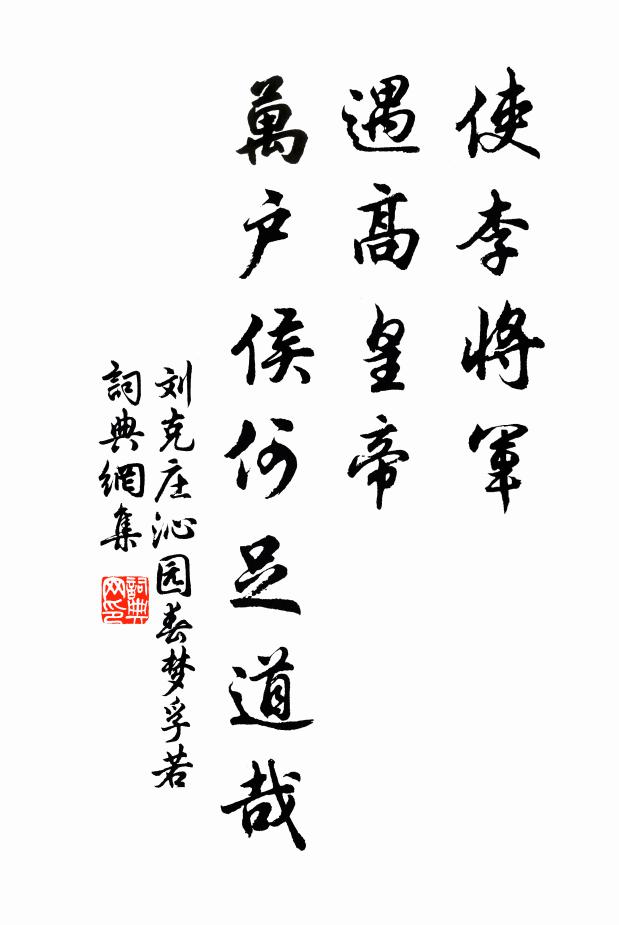 使李將軍
遇高皇帝
萬户侯何足道哉
刘克庄沁园春梦孚若
詞典網集
詞典网印